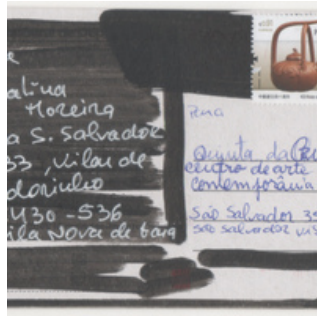 alina
Moreira
a S. Salvador
33, Vilar de
dorinho
430-536
Vila Nova de Gaia
Para
Quinta da
centro de arte
contemporânia
São Salvador 35
São Salvador